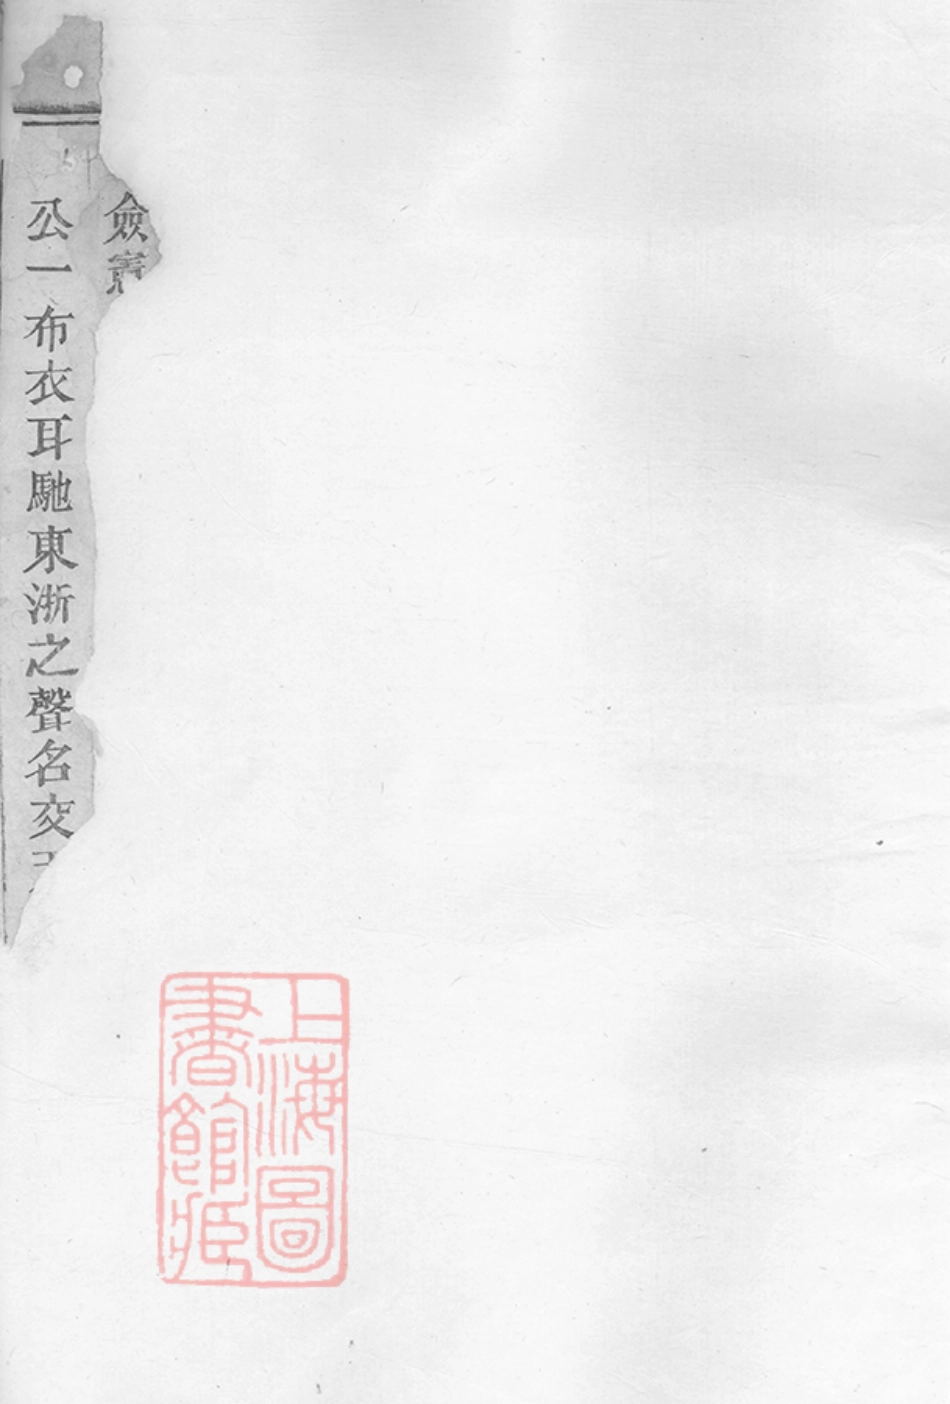 僉
公一布衣耳馳東浙之聲名交
上海圖
書館藏